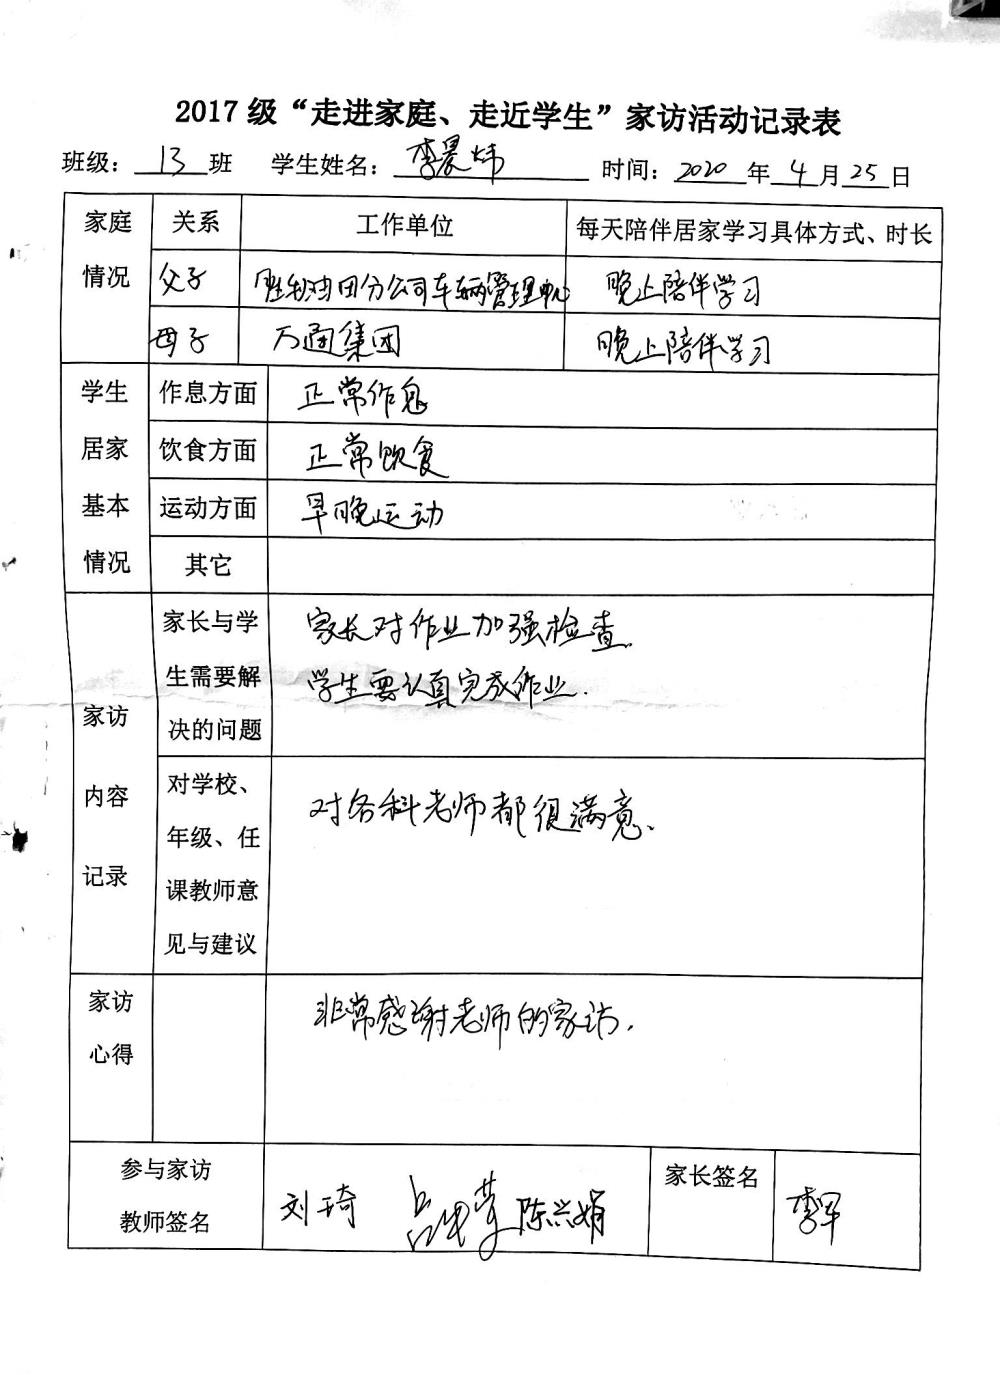 2017 级“走进家庭、走近学生”家访活动记录表
班级： 13 班 学生姓名： 李晨炜 时间： 2020 年 4 月 25 日
家庭情况 关系 工作单位 每天陪伴居家学习具体方式、时长
父子 胜利油田分公司车辆管理中心 晚上陪伴学习
母子 万通集团 晚上陪伴学习
学生居家基本情况 作息方面 正常作息
饮食方面 正常饮食
运动方面 早晚运动
其它
家访内容记录
家长与学生需要解决的问题
家长对作业加强检查.
学生要认真完成作业.
对学校、年级、任课教师意见与建议
对各科老师都很满意、
家访心得
非常感谢老师的家访.
参与家访教师签名 刘琦 陈兴娟 家长签名 李军